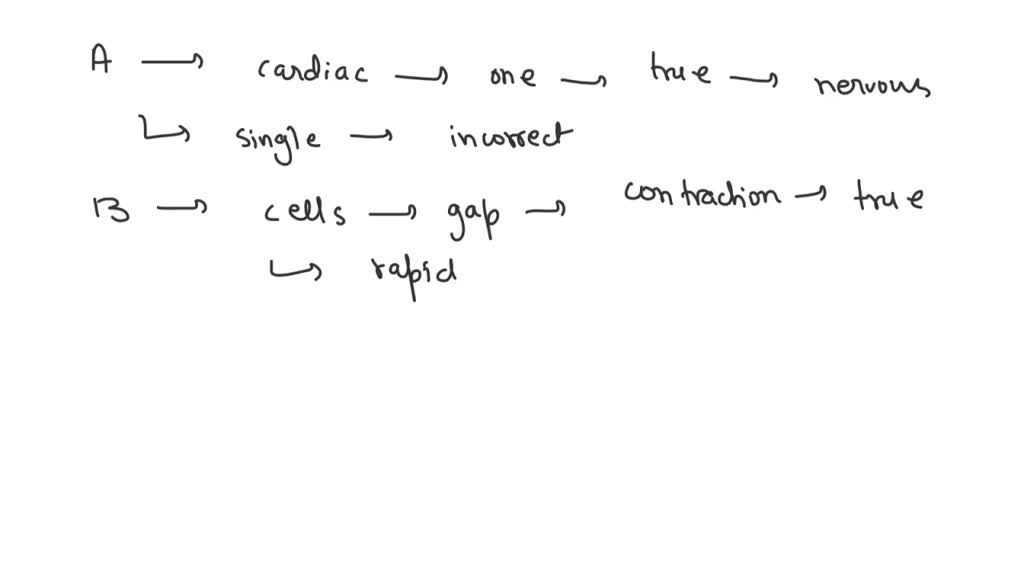 A → cardiac → one → true → nervous
↳ single → incorrect
B → cells → gap → contraction → true
↳ rapid